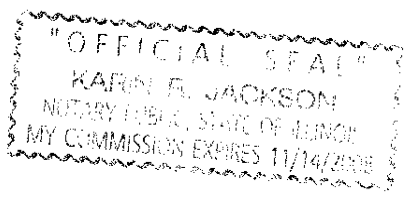 "OFFICIAL SEAL"
KARIN R. JACKSON
NOTARY PUBLIC, STATE OF ILLINOIS
MY COMMISSION EXPIRES 11/14/2008